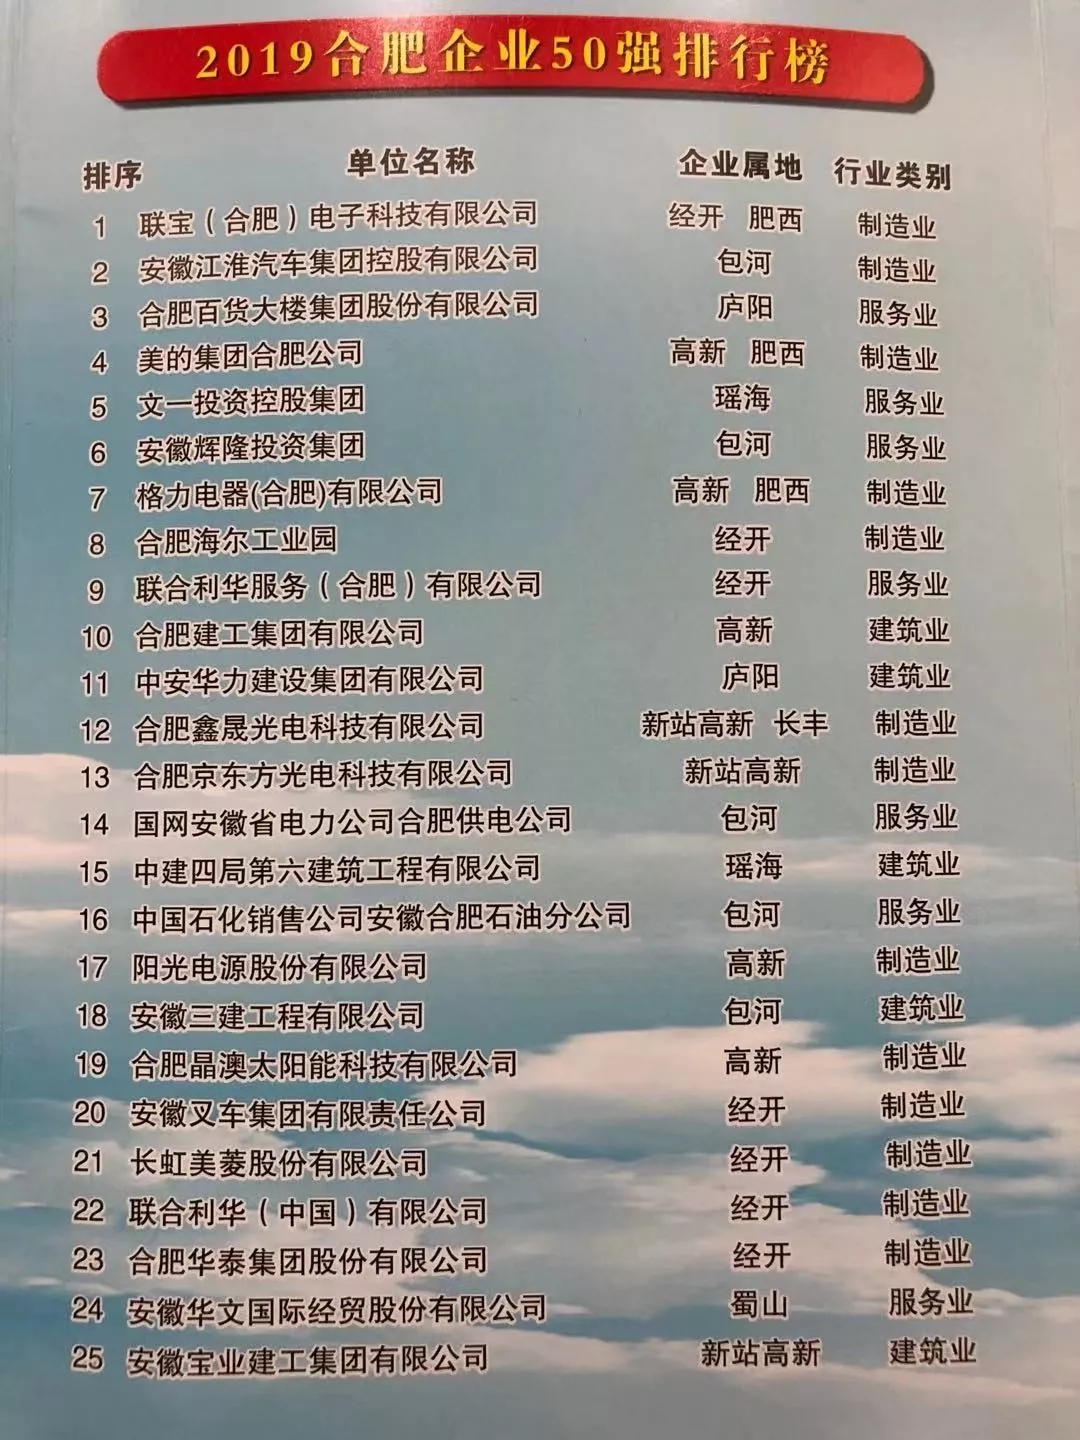 2019合肥企业50强排行榜
排序 单位名称 企业属地 行业类别
1 联宝（合肥）电子科技有限公司 经开 肥西 制造业
2 安徽江淮汽车集团控股有限公司 包河 制造业
3 合肥百货大楼集团股份有限公司 庐阳 服务业
4 美的集团合肥公司 高新 肥西 制造业
5 文一投资控股集团 瑶海 服务业
6 安徽辉隆投资集团 包河 服务业
7 格力电器(合肥)有限公司 高新 肥西 制造业
8 合肥海尔工业园 经开 制造业
9 联合利华服务（合肥）有限公司 经开 服务业
10 合肥建工集团有限公司 高新 建筑业
11 中安华力建设集团有限公司 庐阳 建筑业
12 合肥鑫晟光电科技有限公司 新站高新 长丰 制造业
13 合肥京东方光电科技有限公司 新站高新 制造业
14 国网安徽省电力公司合肥供电公司 包河 服务业
15 中建四局第六建筑工程有限公司 瑶海 建筑业
16 中国石化销售公司安徽合肥石油分公司 包河 服务业
17 阳光电源股份有限公司 高新 制造业
18 安徽三建工程有限公司 包河 建筑业
19 合肥晶澳太阳能科技有限公司 高新 制造业
20 安徽叉车集团有限责任公司 经开 制造业
21 长虹美菱股份有限公司 经开 制造业
22 联合利华（中国）有限公司 经开 制造业
23 合肥华泰集团股份有限公司 经开 制造业
24 安徽华文国际经贸股份有限公司 蜀山 服务业
25 安徽宝业建工集团有限公司 新站高新 建筑业